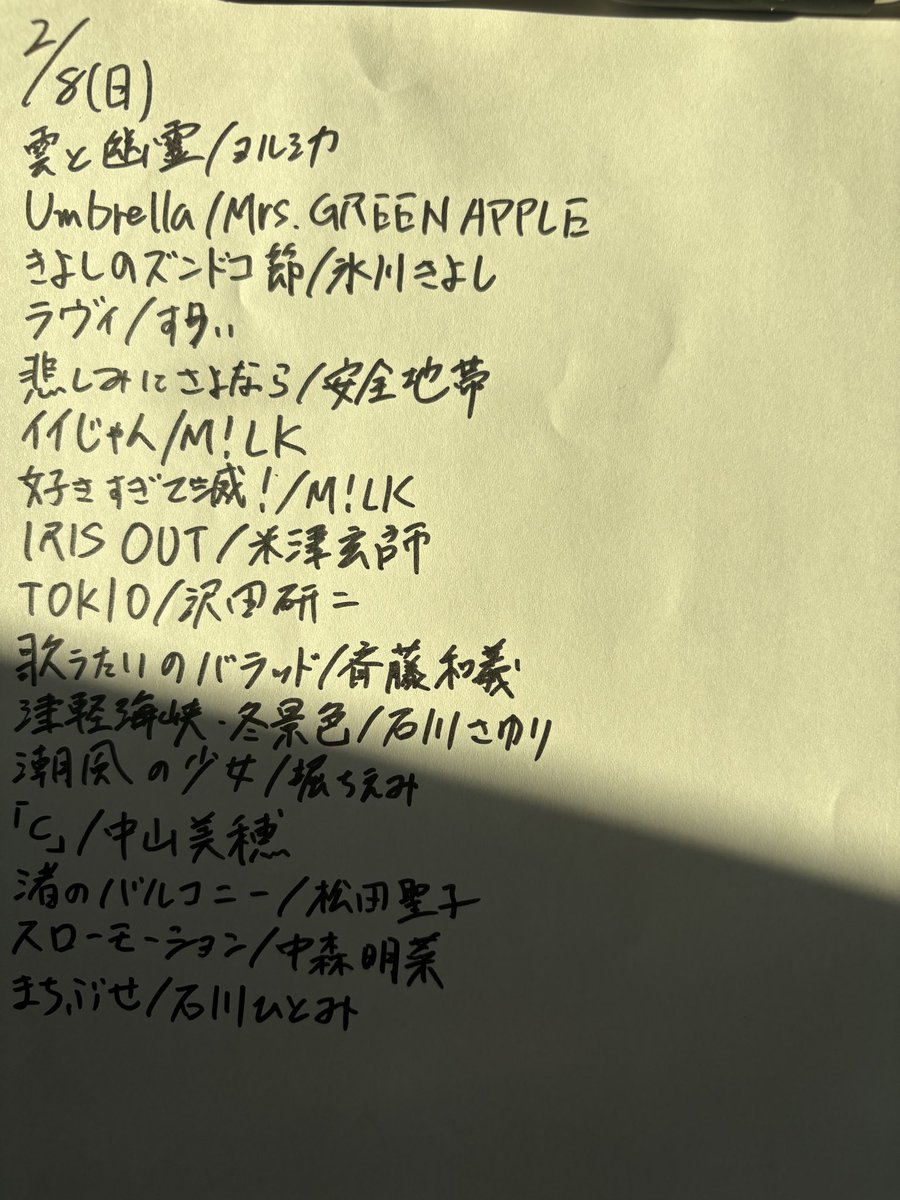 2/8(日)
雲と幽霊/ヨルシカ
Umbrella/Mrs. GREEN APPLE
きよしのズンドコ節/氷川きよし
ラヴィ/すりぃ
悲しみにさよなら/安全地帯
イイじゃん/M!LK
好きすぎて滅!/M!LK
IRIS OUT/米津玄師
TOKIO/沢田研二
歌うたいのバラッド/斉藤和義
津軽海峡・冬景色/石川さゆり
潮風の少女/堀ちえみ
「C」/中山美穂
渚のバルコニー/松田聖子
スローモーション/中森明菜
まちぶせ/石川ひとみ